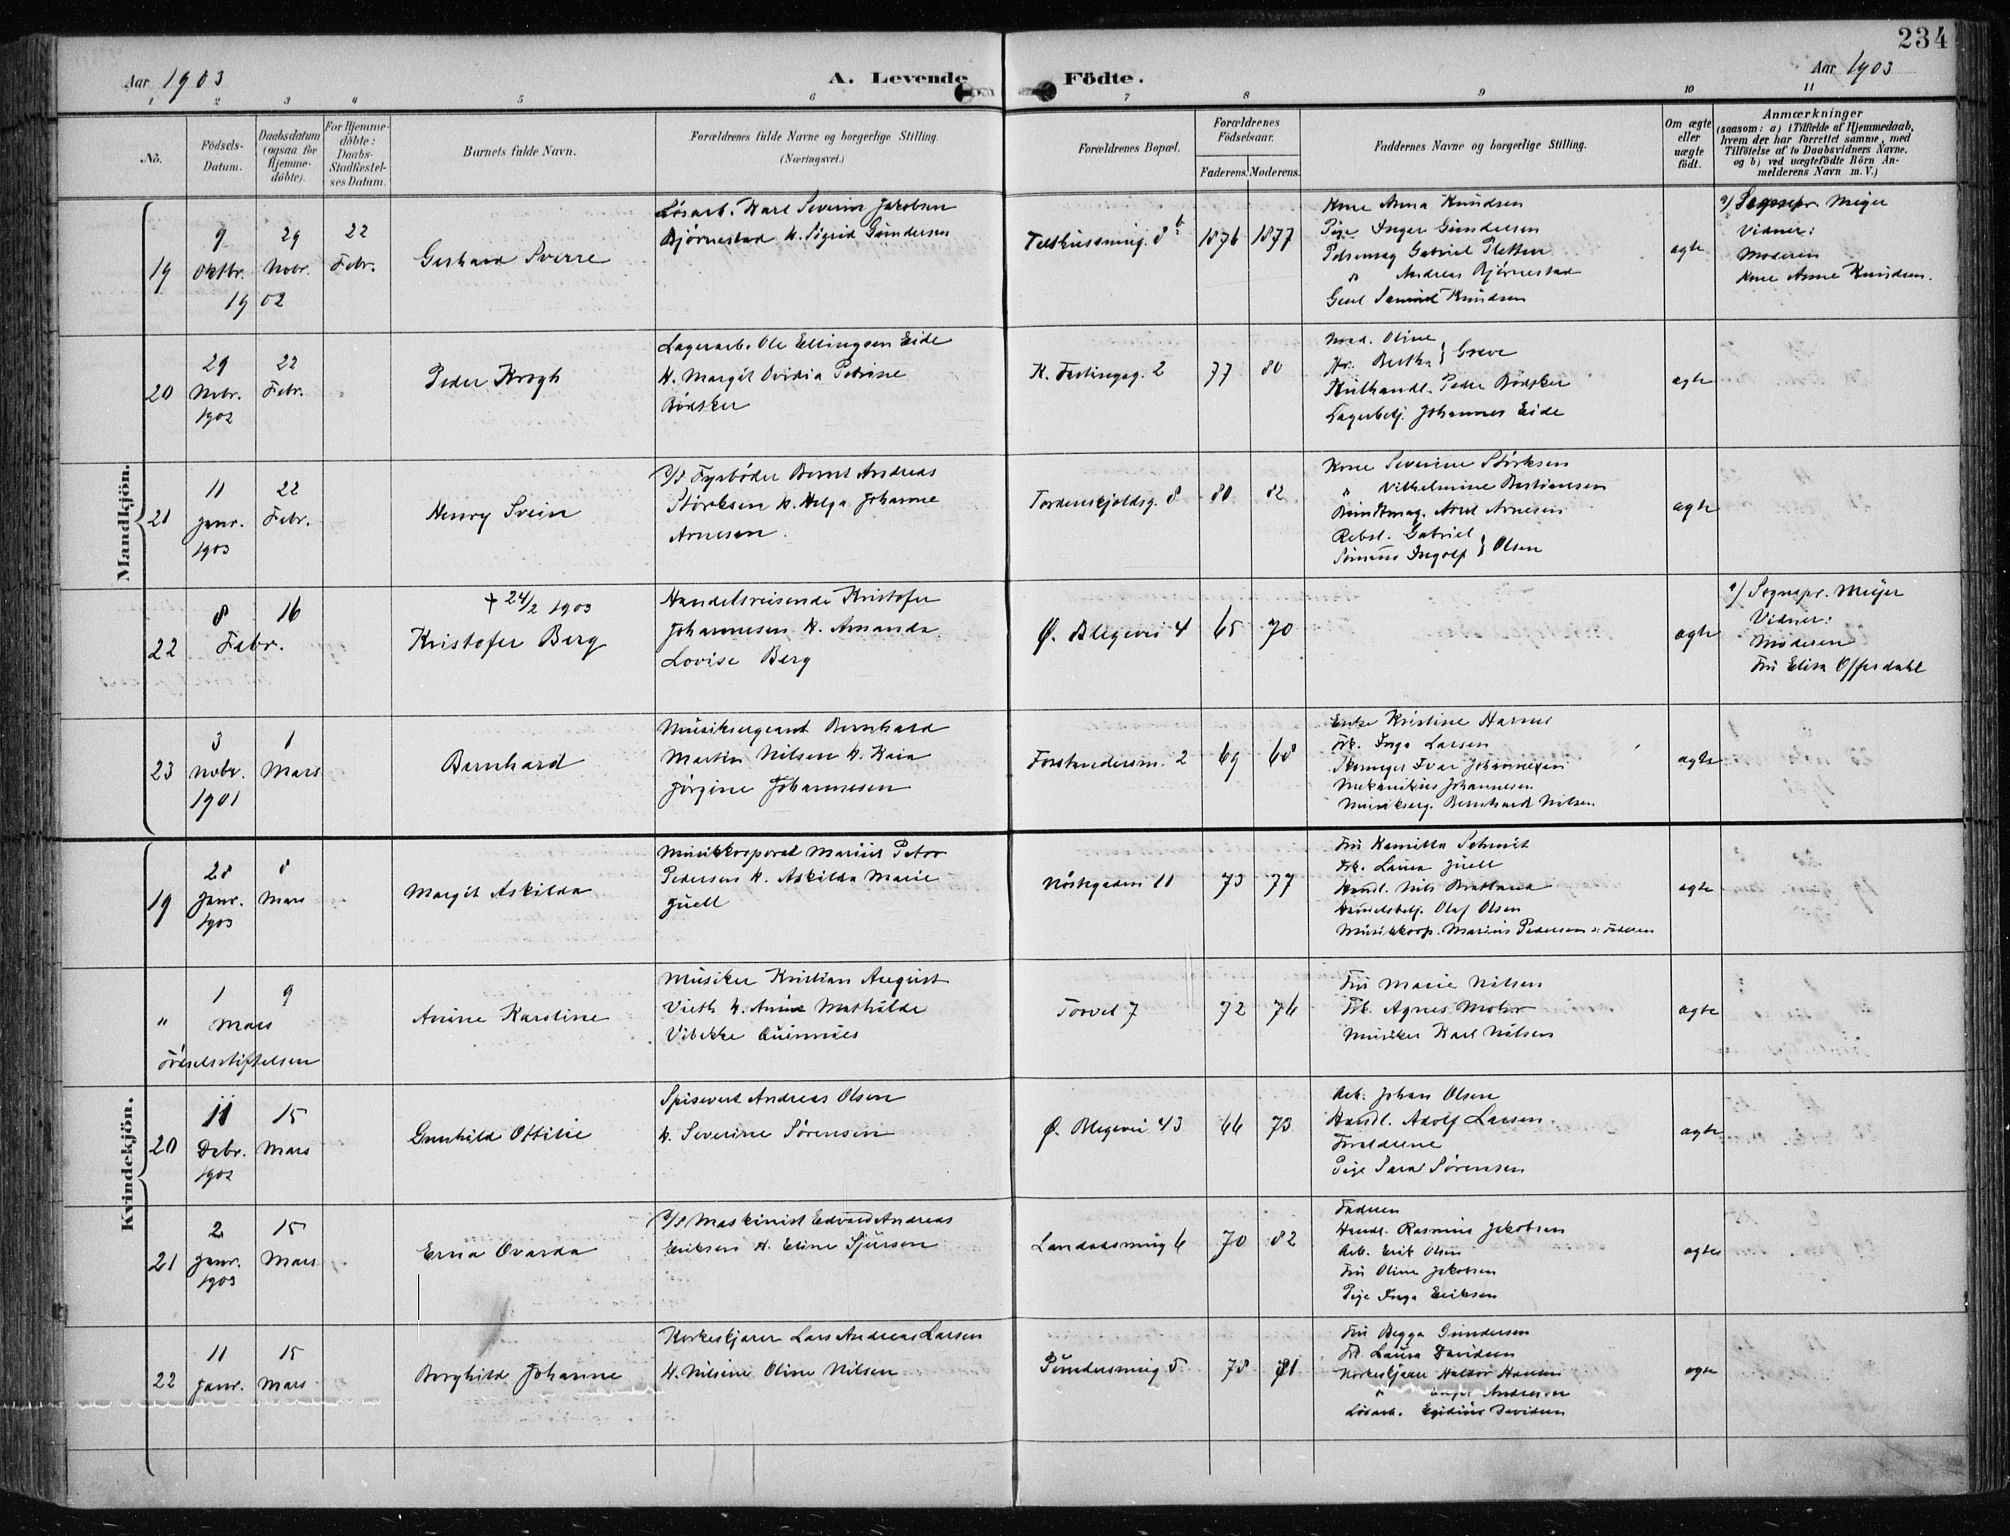 234
Aar 1903
A. Levende Födte.
Aar 1903
1 2 3 4 5 6 7 8 9 10 11
No.
Födsels-Datum.
Daabsdatum (ogsaa for Hjemme-döbte).
For Hjemme-döbte: Daabs-Stadfæstel-ses Datum.
Barnets fulde Navn.
Forældrenes fulde Navne og borgerlige Stilling. (Næringsvei.)
Forældrenes Bopæl.
Forældrenes Födselsaar.
Faderens. Moderens.
Faddernes Navne og borgerlige Stilling.
Om ægte eller uægte født.
Anmærkninger
(saasom: a) i Tilfælde af Hjemmedaab, hvem der har forrettet samme, med Tilföielse af to Daabsvidners Navne, og b) ved uægtefödte Börn An-melderens Navn m. V.)
Mandkjön.
19
9 Oktbr. 1902
29 Novbr.
22 Febr.
Gerhard Sverre
Løsarb. Karl Severin Jakobsen
Bjørnestad h. Sigrid Gundersen
8 b
1876 1877
Kone Anna Knudsen
Pige Inger Gundersen
Gabriel
" Andreas Bjørnestad
Knudsen
ægte
a/ Sognepr. Meyer
Vidner:
Moderen
Kone Anne Knudsen.
20
29 Novbr. 1902
22 Febr.
Peder Krogh
Lagerarb. Ole Ellingsen Eide
h. Margit Ovidia Petrine
Bødtker
2
77 80
Oline
Bertha } Greve
Peder Bødtker
Lagerbetj. Johannes Eide
ægte
21
11 Janr. 1903
22 Febr.
Henry Svein
d/s Fyrbøder Bernt Andreas
Størksen h. Helga Johanne
Arnesen.
Tordenskjoldsg. 8
80 82
Kone Severine Størksen
" Vilhelmine Bastiansen
Buntmag. Arnt Arnesen
Rebsl. Gabriel
Ingolf } Olsen
ægte
22
8 16
Febr.
† 24/2 1903
Kristofer Berg
Handelsreisende Kristofer
Johannesen h. Amanda
Lovise Berg
Ø. Blegevei 4
65 70
ægte
a/ Sognepr. Meyer
Vidner:
Moderen
Fru Elisa Offerdahl
23
3 Novbr. 1901
1 Mars
Bernhard
Musiksergeant Bernhard
Martin Nilsen h. Kaia
Jørgine Johannesen
Forstandersm. 2
69 68
Enke Kristine
Frk. Inga Larsen
Skomager Ivar Johannesen
Johannesen
Musikserg. Bernhard Nilsen
ægte
Kvindekjön.
19
28 Janr. 1903
8 Mars
Margit Askilda
Musikkorporal Marius Peter
Pedersen h. Askilda Marie
Juell
Nøstegaden 11
73 77
Fru Kamilla Schmit
Frk. Laura Juell
Handl. Nils
Handelsbetj. Olaf Olsen
Musikkorp. Marius Pedersen ɔ: Faderen
ægte
"
1 9
Mars
Fødselsstiftelsen
Anine Karoline
Musiker Kristian August
Vieth h. Anine Mathilde
Vibekke
Torvet 7
72 76
Fru Marie Nilsen
Frk. Agnes Mohr
Musiker Karl Nilsen
ægte
20
11 Debr. 1902
15 Mars
Gunhild Ottilie
Spisevert Andreas Olsen
h. Severine Sørensen
Ø. Blegevei 43
66 73
Arb. Johan Olsen
Handl. Adolf Larsen.
Forældrene
Pige Sara Sørensen
ægte
21
2 Janr. 1903
15 Mars
Erna Ovarda
d/s Maskinist Edvard Andreas
Eriksen h. Eline Sjursen
Landaasmug 6
70 82
Faderen
Handl. Rasmus Jakobsen
Arb. Erik Olsen
Fru Oline Jakobsen
Pige Inga Eriksen
ægte
22
11 Janr.
15 Mars
Borghild Johanne
Korkeskjærer Lars Andreas Larsen
h. Nilsine Oline Nilsen
Pundersmug 5
78 81
Fru Begga Gundersen
Frk. Laura Davidsen
Korkeskjærer Haldor Hansen
" Andersen
Løsarb. Egidius Davidsen
ægte